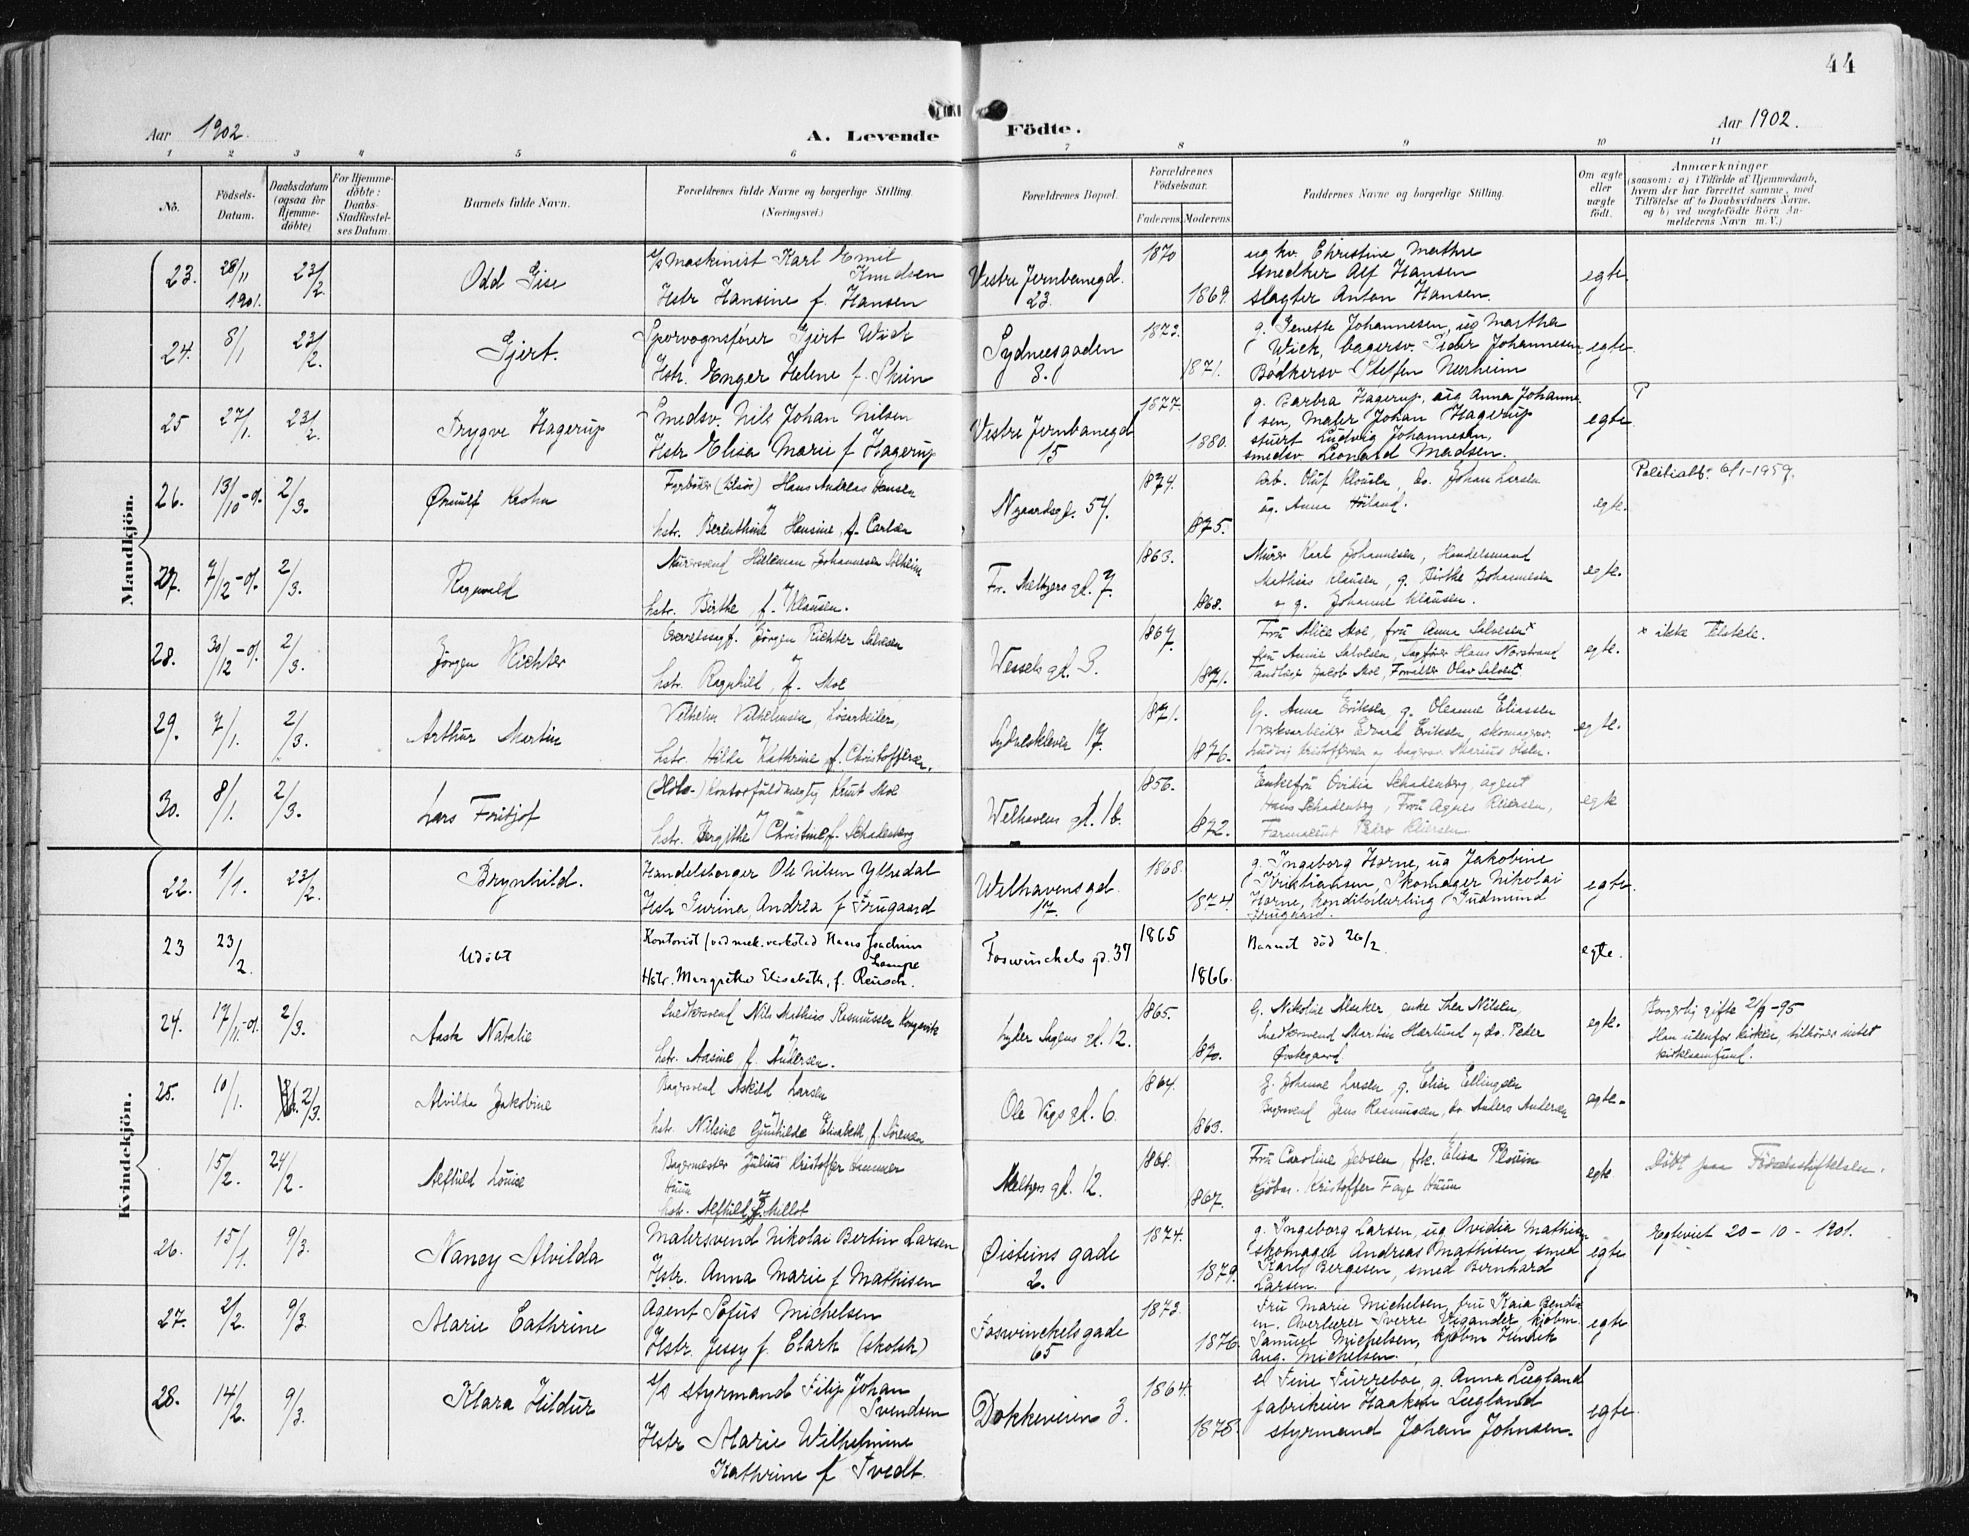 44
Aar 1902.
A. Levende Födte.
Aar 1902.
1 2 3 4 5 6 7 8 9 10 11
No.
Födsels-Datum.
Daabsdatum (ogsaa for Hjemme-döbte)
For Hjemme-döbte: Daabs-Stadfæstel-ses Datum.
Barnets fulde Navn.
Forældrenes fulde Navne og borgerlige Stilling.
(Næringsvei.)
Forældrenes Bopæl.
Forældrenes Födselsaar.
Faderens. Moderens.
Faddernes Navne og borgerlige Stilling.
Om ægte eller uægte födt.
Anmærkninger
(saasom: a) i Tilfælde af Hjemmedaab,
hvem der har forrettet samme, med
Tilföielse af to Daabsvidners Navne.
og b) ved uægtefödte Börn An-
melderens Navn m. V.)
Mandkjön.
23. 28/11 1901. 23/2. Odd Gise
s/s Maskinist Karl Emil
Knudsen
Hstr Hansine f. Hansen
Vestre Jernbanegd.
23.
1870 1869.
ug kv. Christine Mathre
snedker Alf Hansen
slagter Anton Hansen.
egte.
24. 8/1 23/2. Gjert.
Sporvognsfører Gjert Wick
Hstr. Enger Helene f. Skien
Sydnesgaden
8.
1873. 1871.
g. Jenette Johannesen, ug Martha
Wick, bagersv. Peder Johannesen
Bødkersv Steffen Neerheim
egte.
25 27/1. 23/2. Trygve Hagerup
Smedsv. Nils Johan Nilsen
Hstr Elisa Marie f Hagerup
Vestre Jernbanegd
15
1877. 1880.
g. Barbra Hagerup, ug Anna Johanne-
sen, Maler Johan Hagerup
stuert Ludvig Johannesen,
smedsv. Leonard Madsen.
egte
26. 13/10-01. 2/3. Ørnulf Krohn
Fyrbøder Hans Andreas Jensen
hstr. Berenthine Hansine, f. Carlsen
Nygaardsgd. 57.
1874. 1875.
Arb. Oluf Klausen, do. Johan Larsen
ug. Anna Høiland.
egte.
Politiatt. 6/1-1959.
27. 7/12-01. 2/3. Ragnvald
Murersvend Johannesen Solheim
hstr. Birthe f. Klausen.
Fr. Meltzers gd. 7.
1863. 1868.
Murer Karl Johannesen, Handelsmand
Mathias Klausen, g. Birthe Johannesen
og g. Johanne Klausen.
egte.
28. 30/12-01. 2/3. Jörgen Richter
Overretssagf. Jörgen Richter Salvesen
hstr. Ragnhild, f. Moe
Wessels gd. 3.
1867. 1871.
Fru Alice Moe, fru Anna Salvesen x
fru Annie Salvesen, Sagfører Hans Norstrand
Tandlæge Jacob Moe, Forvalter Olav Salvesen x
egte.
x ikke tilstede.
29. 7/1. 2/3. Arthur Martin
Vilhelm Vilhelmsen, Løsarbeider,
hstr. Hilda Kathrine f. Christoffersen.
Sydneskleven 17.
1871. 1876.
G. Anna Eriksen g. Oleanne Eliassen
Værksarbeider Edvard Eriksen, skomagersv.
Ludvig Kristoffersen og bagersv. Marius Olsen.
egte.
30. 8/1. 2/3. Lars Fritjof
Kontorfuldmægtig Knut Moe
hstr. Bergithe Christine f. Schadenberg
Welhavens gd. 16.
1856. 1872.
Enkefru Ovidia Schadenberg, agent
Hans Schadenberg, Fru Agnes Riiersen,
Farmaceut Pedro Riiersen.
egte
Kvindekjön.
22. 1/1. 23/2. Brynhild.
Handelsborger Ole Nilsen Yttredal
Hstr Gurina Andrea f Frugaard
Welhavensgd.
17.
1868. 1874.
g. Ingeborg Horne, ug Jakobine
Kristiansen, Skomager Nikolai
Horne, Konditorlærling Gudmund
Frugaard.
egte.
23 23/2. Udöbt
Kontorist (ved mek. verksted Hans Joachim
Lampe
Hstr. Margrethe Elisabeth, f. Reusch.
Foswinckels gd. 37
1865 1866.
Barnet död 26/2
egte.
24. 17/11-01. 2/3. Aasta Natalie
Snedkersvend Nils Mathias Rasmussen Kongsvik
hstr. Aasine f. Andersen.
Lyder Sagens gd. 12.
1865. 1870.
G. Nikolie Munker, enke Thea Nilsen,
Snedkersvend Martin Hærlund og do. Peder
Øvregaard.
egte.
Borgerlig gifte 21/9-95
Han udenfor kirken, tilhører intet
kirkesamfund.
25. 10/1. 2/3. Alvilda Jakobine
Bagersvend Askild Larsen
hstr. Nilsine Gunhilde Elisabeth f. Sørensen
Ole Vigs gd. 6.
1864. 1863.
G. Johanne Larsen g. Elise Ellingsen
Bagersvend Jens Rasmussen, do Anders Andersen
egte.
15/2. 24/2. Alfhild Louise
Bagermester Julius Kristoffer Hammer
Huun
hstr. Alfhild f. Millot
Meltzers gd. 12.
1868. 1867.
Fru Caroline Jebsen frk. Elisa Plouin
Kjøbm. Kristoffer Faye Huun
egte
Döbt paa Födselsstiftelsen.
26. 15/1. 9/3. Nancy Alvilda
Malersvend Nikolai Bertin Larsen
Hstr. Anna Marie f Mathisen
Øisteins gade
2.
1874. 1879.
g. Ingeborg Larsen, ug Ovidia Mathisen
skomager Andreas Mathisen, smed
Karl Bergesen, smed Bernhard
Larsen.
egte
Egteviet 20-10-1901.
27. 2/2. 9/3. Marie Cathrine
Agent Sofus Michelsen
Hstr. Jessy f. Clark (skotsk)
Foswinckelsgade
65
1873 1876.
Fru Marie Michelsen, fru Kaia Bendix-
en. Averterer Sverre Wigander, kjøbm.
Samuel Michelsen, kjøbm Henrik
Aug. Michelsen.
egte
28. 14/2. 9/3. Klara Hildur
s/s styrmand Filip Johan
Svendsen
Hstr Marie Wilhelmine
Kathrine f Tvedt.
Dokkeveien 3.
1864. 1878.
e Fine Furreboe, g. Anna Lægland
fabrikeier Haakon Lægland
styrmand Johan Johnsen.
egte